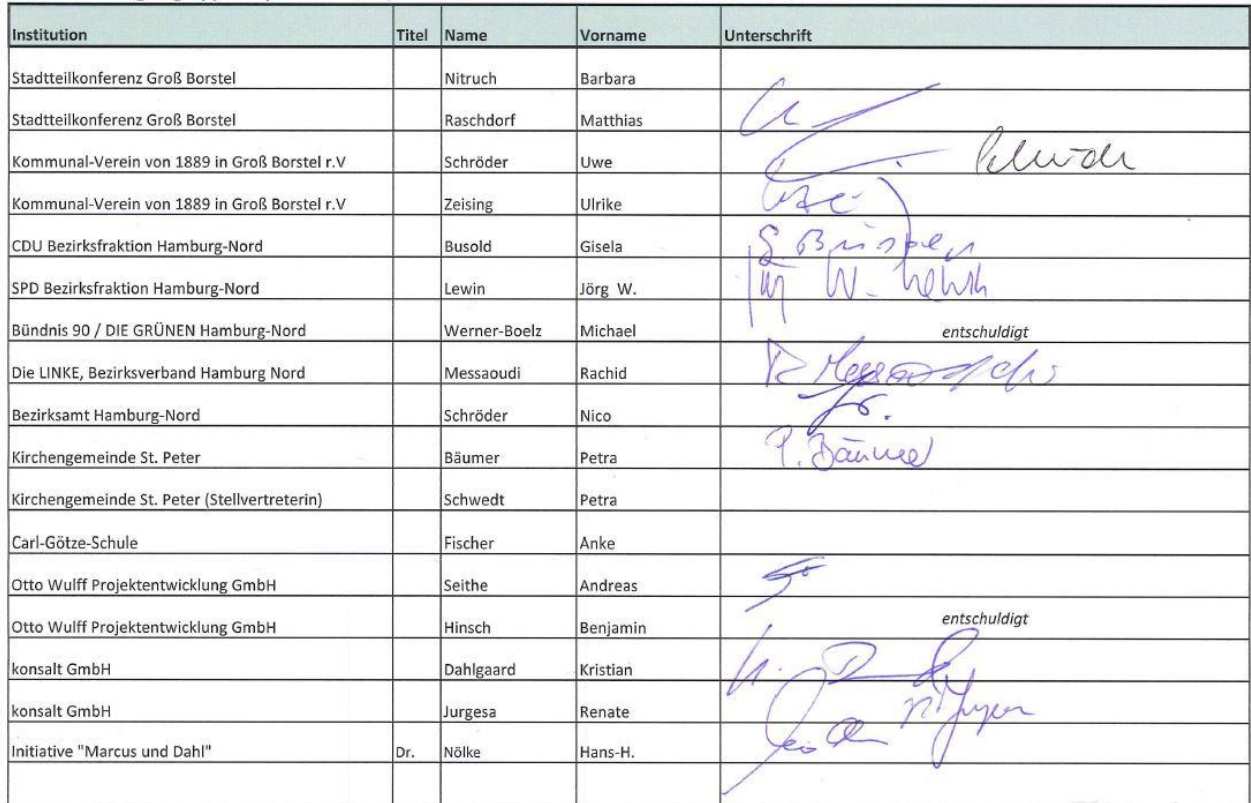 Institution Titel Name Vorname Unterschrift
Stadtteilkonferenz Groß Borstel Nitruch Barbara
Stadtteilkonferenz Groß Borstel Raschdorf Matthias
Kommunal-Verein von 1889 in Groß Borstel r.V Schröder Uwe
Kommunal-Verein von 1889 in Groß Borstel r.V Zeising Ulrike
CDU Bezirksfraktion Hamburg-Nord Busold Gisela
SPD Bezirksfraktion Hamburg-Nord Lewin Jörg W.
Bündnis 90 / DIE GRÜNEN Hamburg-Nord Werner-Boelz Michael entschuldigt
Die LINKE, Bezirksverband Hamburg Nord Messaoudi Rachid
Bezirksamt Hamburg-Nord Schröder Nico
Kirchengemeinde St. Peter Bäumer Petra P. Bäumer
Kirchengemeinde St. Peter (Stellvertreterin) Schwedt Petra
Carl-Götze-Schule Fischer Anke
Otto Wulff Projektentwicklung GmbH Seithe Andreas
Otto Wulff Projektentwicklung GmbH Hinsch Benjamin entschuldigt
konsalt GmbH Dahlgaard Kristian
konsalt GmbH Jurgesa Renate
Initiative "Marcus und Dahl" Dr. Nölke Hans-H.